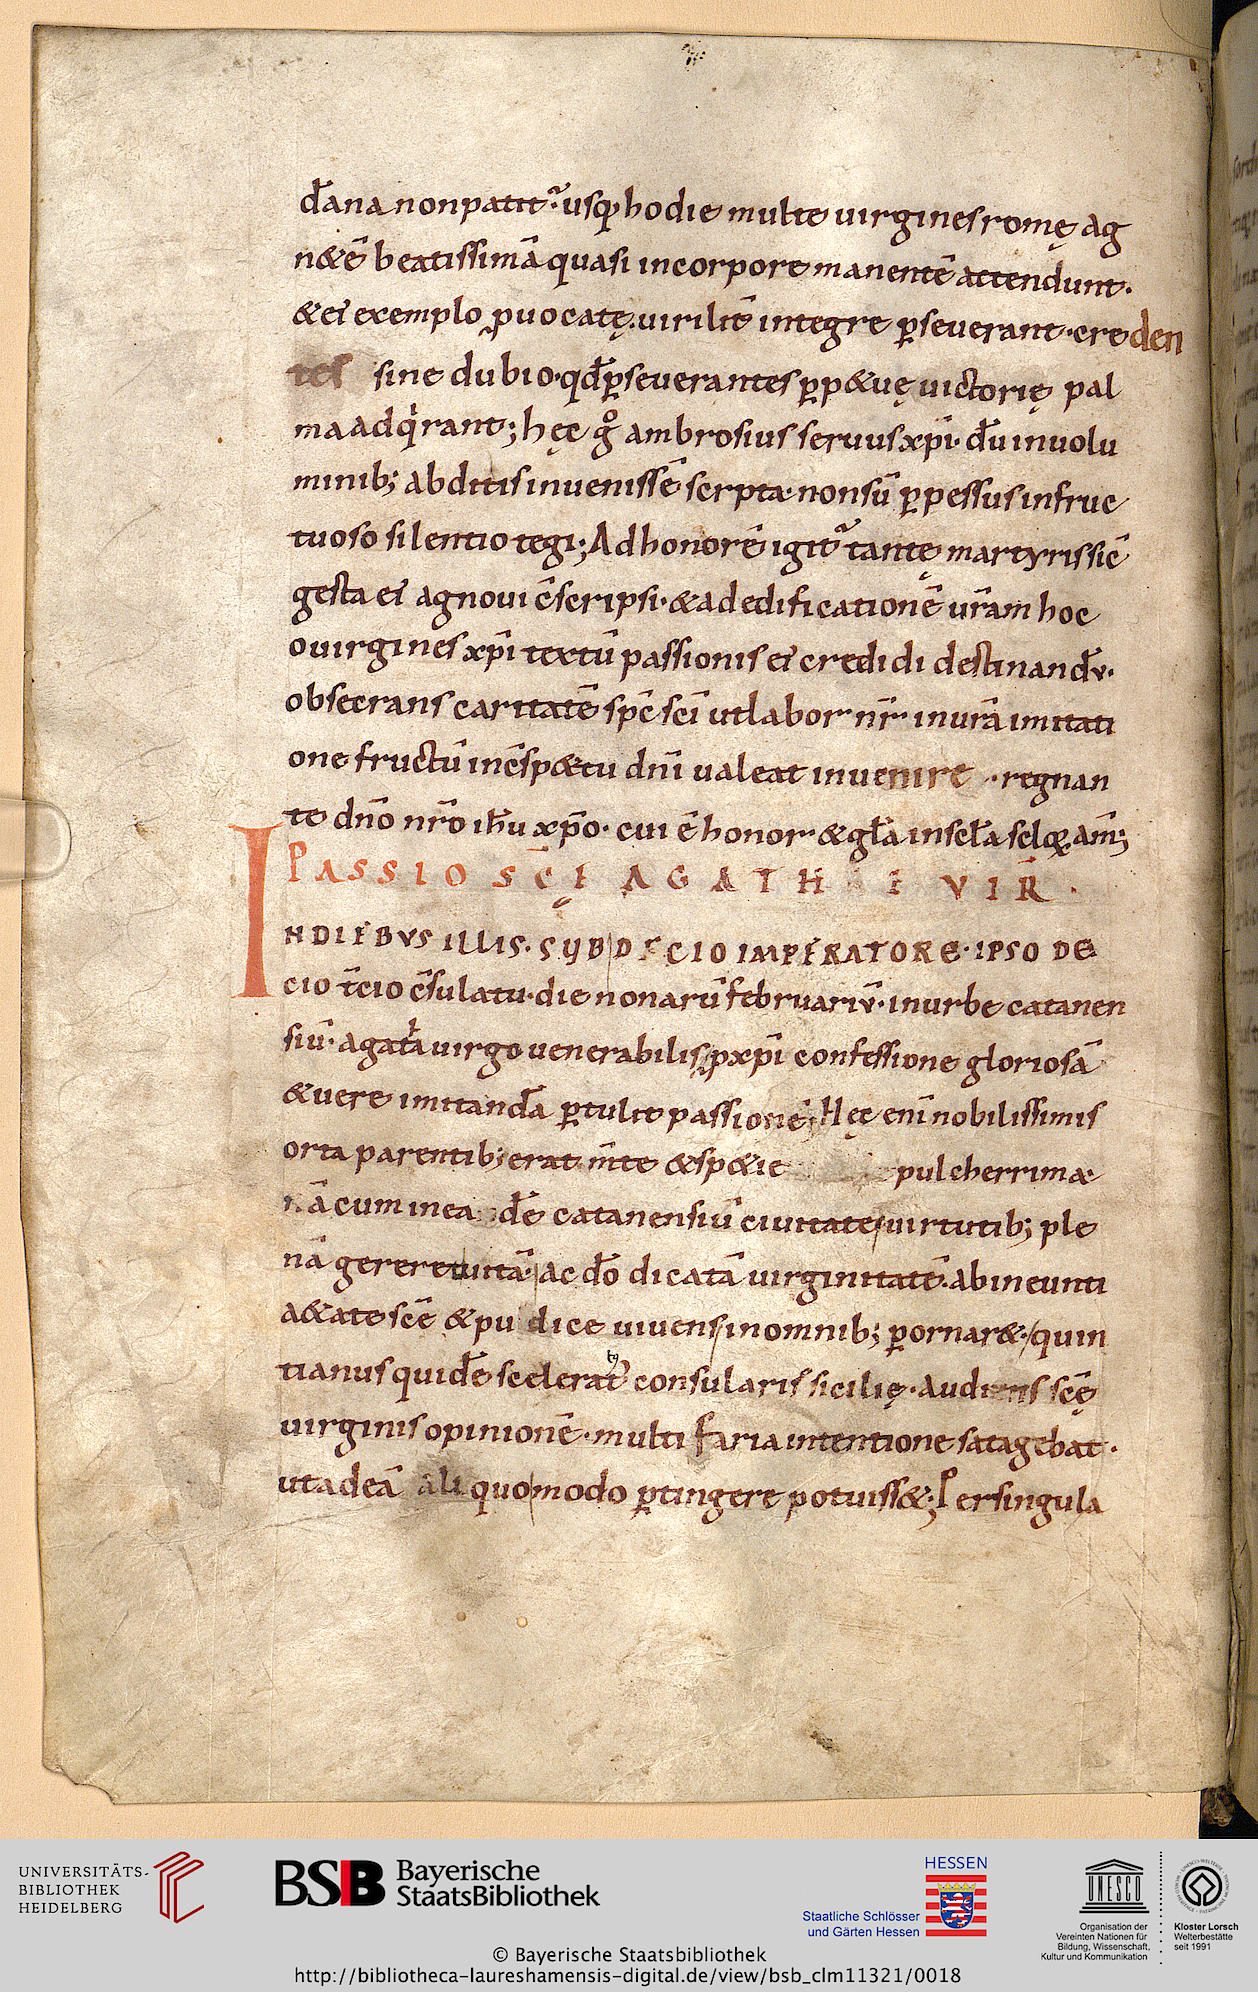 d̄ana non patit᷑ usq; hodie multe uirgines romę ag
n&ē beatissimā quasi incorpore manentē attendunt.
& ei exemplo ꝓuocatę. uirilit̄ integre ꝑseuerant. creden
tes sine dubio. qd̄ ꝑseuerantes ꝑp&uę uictorię pal
ma adqͥrant; hęc gͦ ambrosius seruus xp̄i. dū inuolu
minib; abditis inuenissē scrpta. non sū ꝑpessus infruc
tuoso silentio tegi; Ad honorē igit᷑ tantę martyris sic̄
gesta ei agnoui c̄scripsi. & ad edificationē ur̄am hoc
o uirgines xp̄i textū passionis ei credidi destinandv̄.
obsecrans caritatē sp̄c sc̄i ut labor nr̄ in urā imitati
one fructū in c̄sp&tu dn̄i ualeat inuenire. regnan
te dn̄o nr̄o ih̄u xp̄o. cui ē honor & gl̄a in scl̄a sclꝝ am̄;
PASSIO SC̄Ę AGATHE VIR̄.
INDIEBVS ILLIS. SUB DECIO IMPERATORE. IPSO DE
cio t̄cio c̄sulatu. die nonarū februariv̄. in urbe catanen
siū. agata uirgo uenerabilis ꝓ xp̄i confessione gloriosā
& uere imitandā ꝑtulit passionē; Hęc eni nobilissimis
orta parentib; erat m̄te & sp&ie pulcherrima.
nā cum in ea d̄e catanensiū ciuitate uirtutib; ple
nā gereret uitā. ac dō dicatā uirginitatē. ab ineunti
a&ate sc̄e & pudice uiuens in omnib; ꝑornar&. quin
tianus quidē scelerat᷒ consularis sicilię. audiens sc̄ę
uirginis opinionē. multifaria intentione satagebat.
ut ad eā aliquo modo ꝑtingere potuiss&; Per singula
UNIVERSITÄTS-
BIBLIOTHEK
HEIDELBERG
BSB Bayerische
StaatsBibliothek
HESSEN
Staatliche Schlösser
und Gärten Hessen
UNESCO
Organisation der
Vereinten Nationen für
Bildung, Wissenschaft,
Kultur und Kommunikation
Kloster Lorsch
Welterbestätte
seit 1991
© Bayerische Staatsbibliothek
http://bibliotheca-laureshamensis-digital.de/view/bsb_clm11321/0018